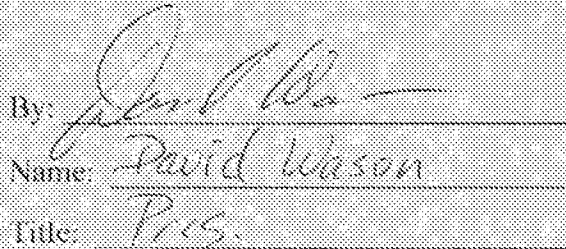 By:
Name: David Wason
Title: Pres.